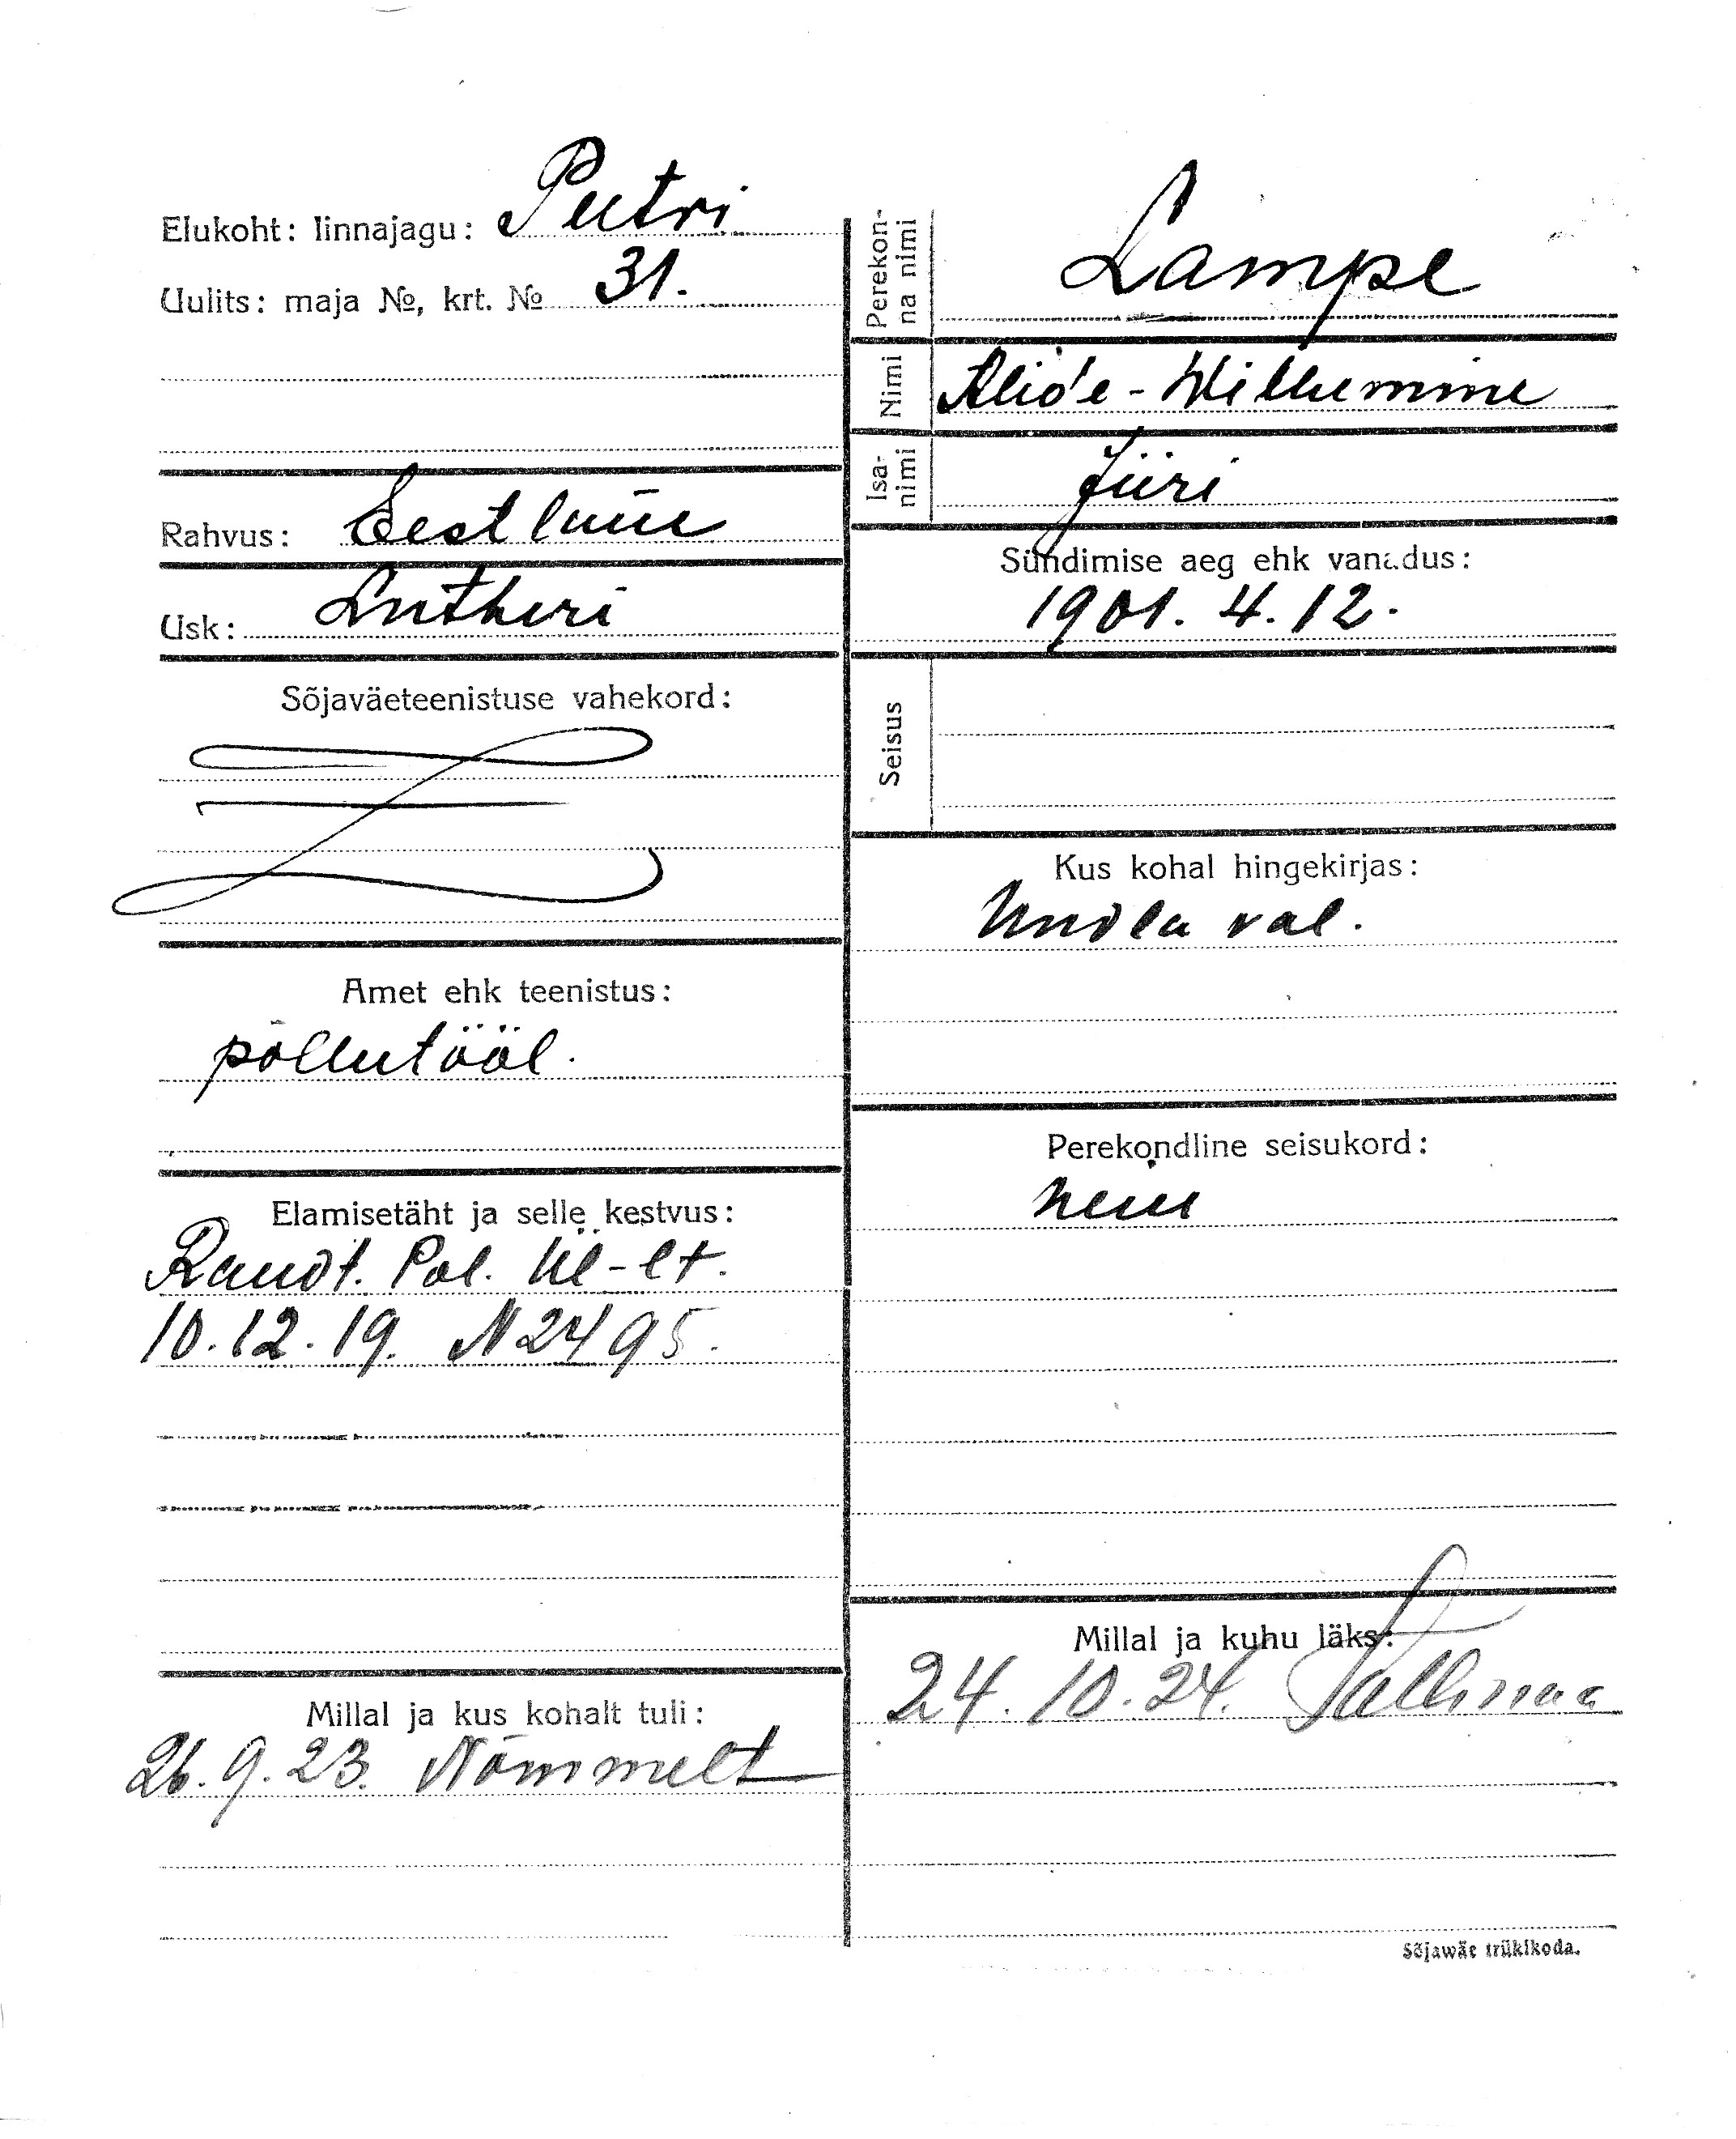 Elukoht: linnajagu: Peetri
Uulits: maja №, krt. № 31.
Rahvus: Eestlane
Usk: Lutheri
Sõjaväeteenistuse vahekord:
Amet ehk teenistus:
põllutööl.
Elamisetäht ja selle kestvus:
Raudt. Pol. Ül-lt.
10.12.19. N 2495.
Millal ja kus kohalt tuli:
26.9.23. Nõmmelt
Perekon-
na nimi
Lampe
Nimi Alide-Willemine
Isa-
nimi
Jüri
Sündimise aeg ehk vanadus:
1901. 4. 12.
Seisus
Kus kohal hingekirjas:
Undla val.
Perekondline seisukord:
neiu
Millal ja kuhu läks:
24.10.24. Tallinna
Sõjawäe trükikoda.